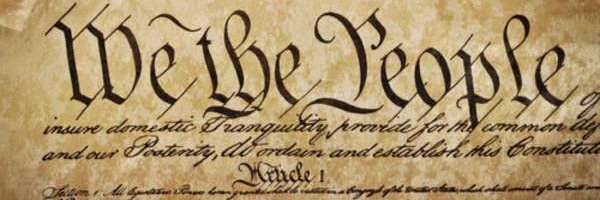 We the People of
insure domestic Tranquility, provide for the common def
and our Posterity, do ordain and establish this Constitut
Article 1
Section 1. All legislative Powers herein granted shall be vested in a Congress of the United States, which shall consist of a Senate and